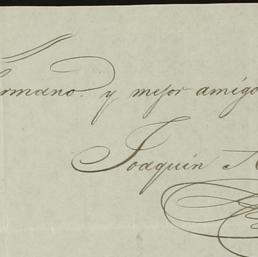 hermano y mejor amigo
Joaquin